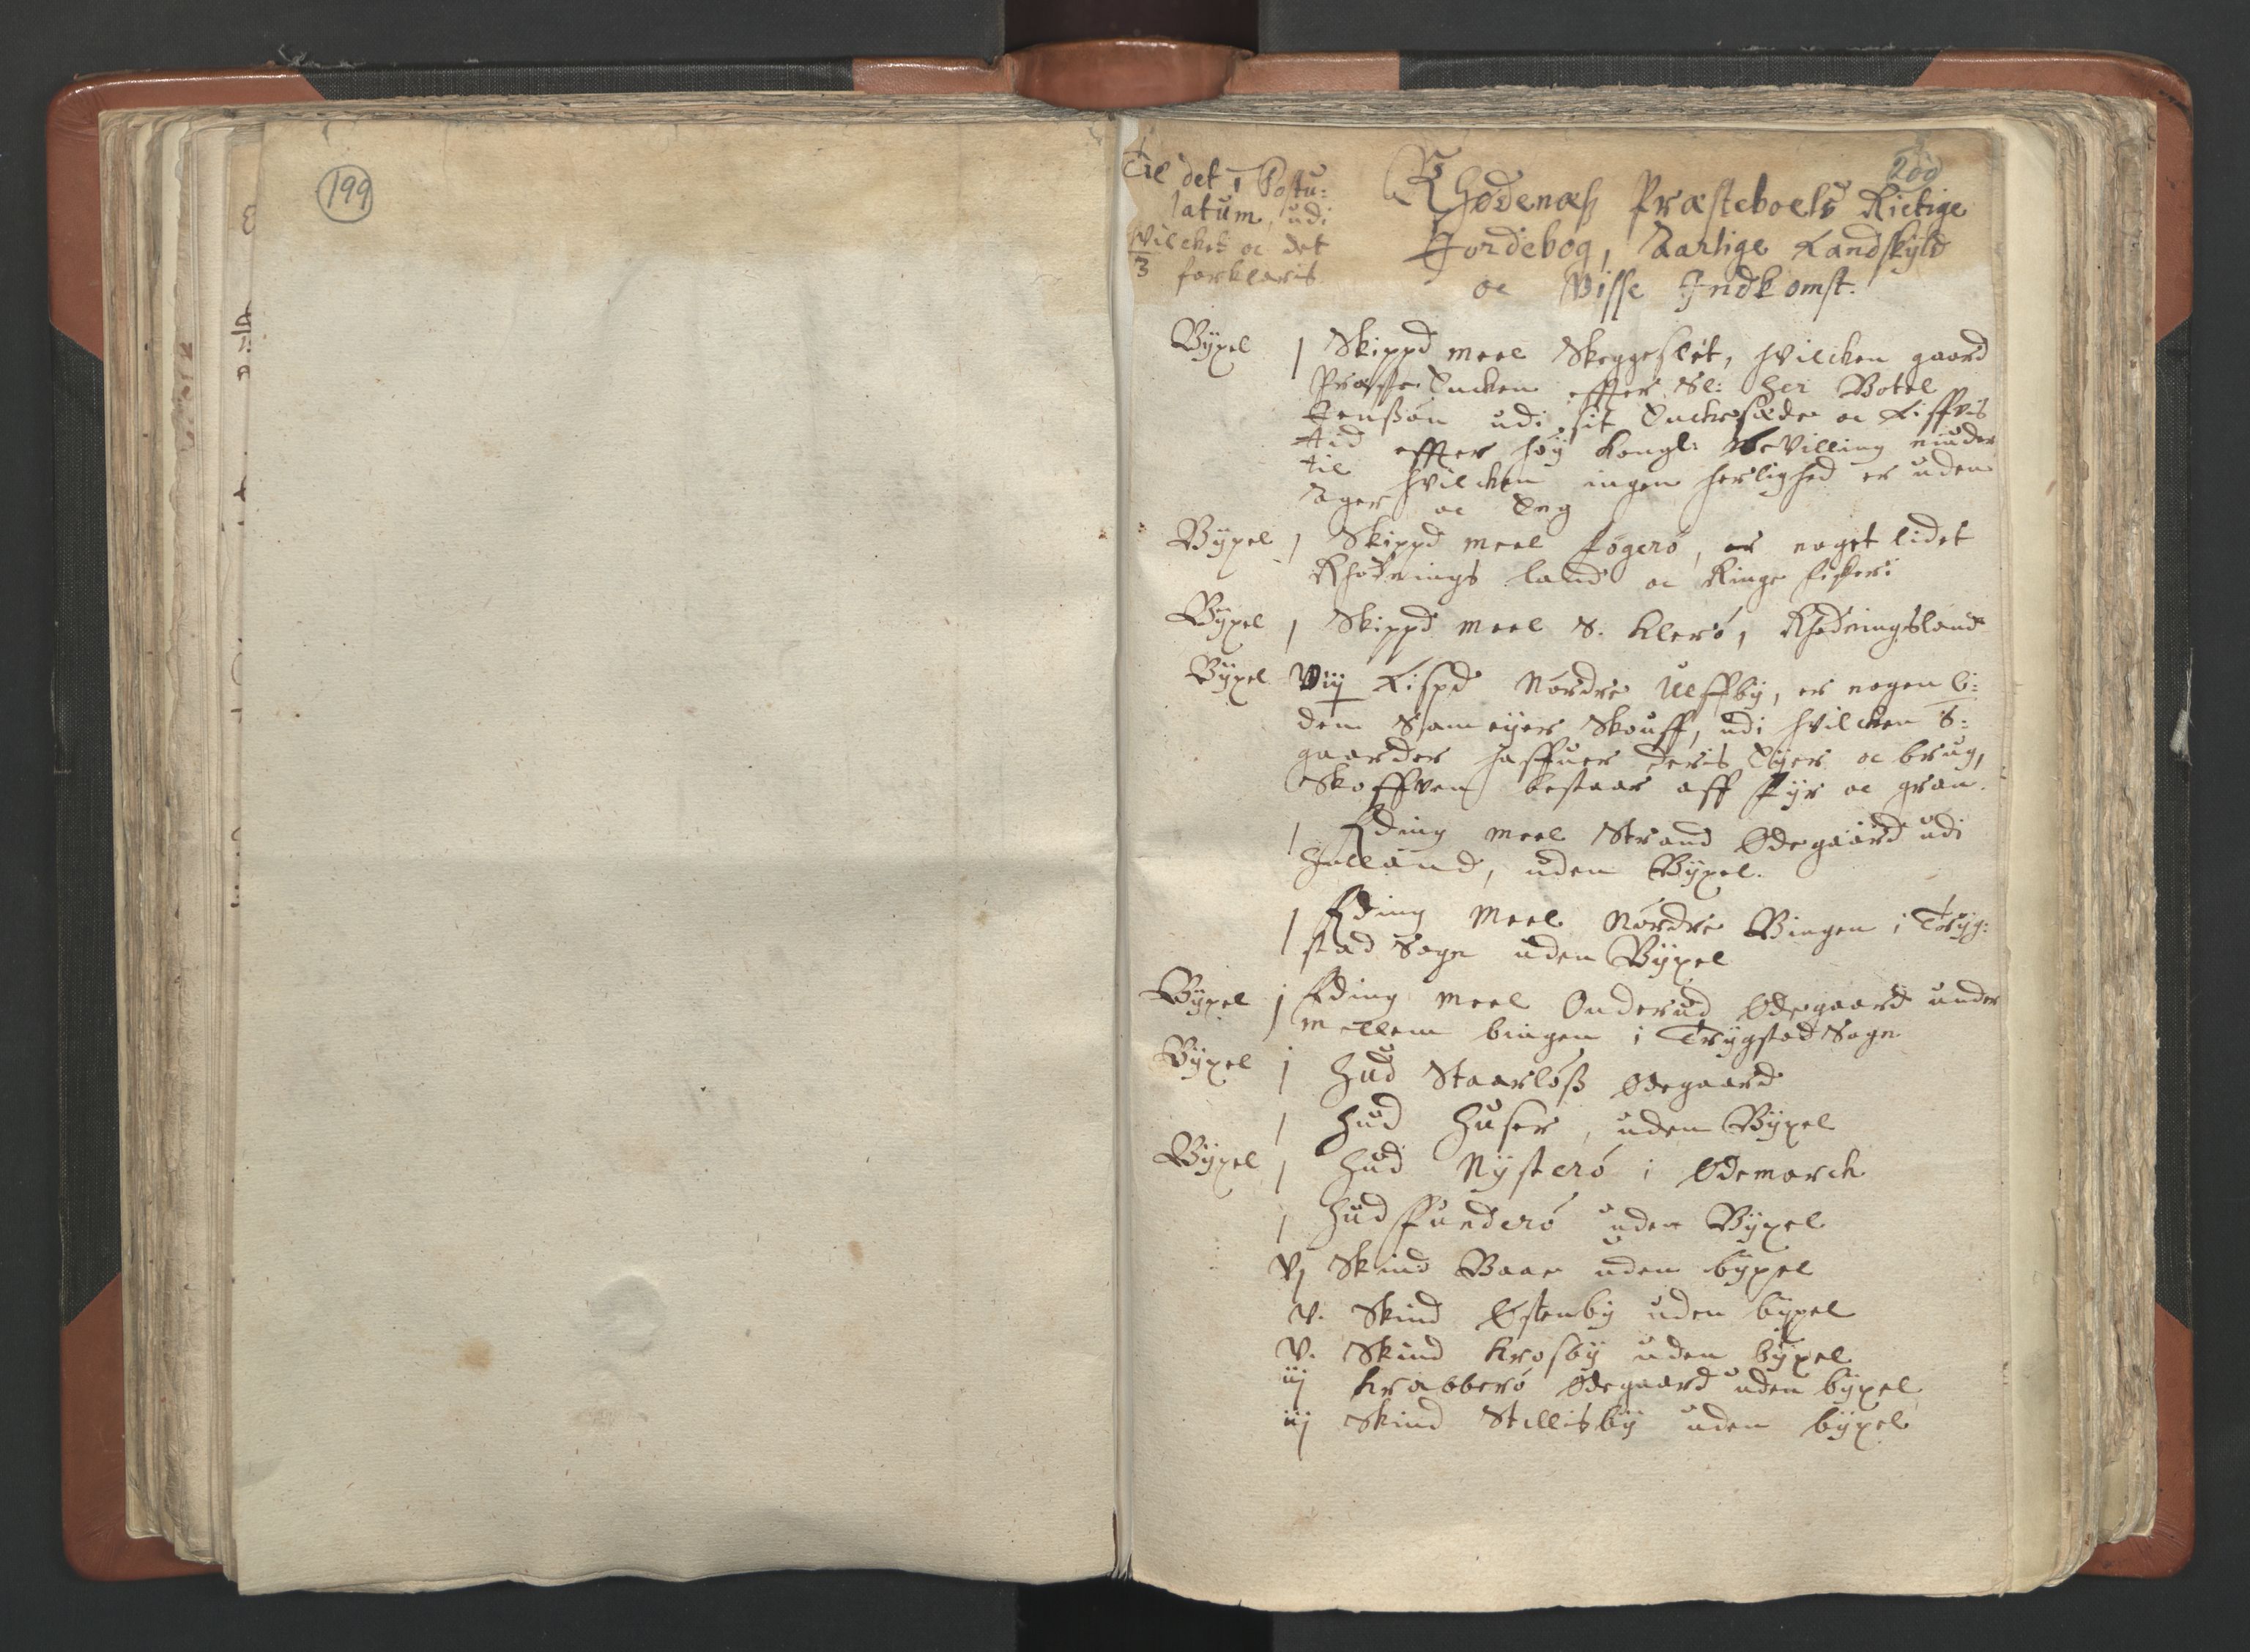 199
200
Til det 1 Postu:
latum, udi
hvilcket oc det
3 forklaris
Rhødenæss Præsteboels Rictige
Jordebog, Aarlige Landskyld
oc Visse Indkomst.
Byxel 1 Skippd meel Skeggeslet, hvilcken gaard
Præste Encken effter Sl: Her Botel
Jensøn udi sit Enckesæde oc Liffvis
tid effter høy Kongl: Bevilling niuder
til hvilcken ingen herlighed er uden
Ager oc Eng
Byxel 1 Skippd meel Fogerø, er noget lidet
Rhødnings land oc Ringe fiskeri
Byxel 1 Skippd meel S. Klerø, Rhødningsland
Byxel Vij Lispd Nordre Ulffby, er nogen li:
den Sameyer Skouff, udi hvilcken 8:
gaarder haffuer deris Eyer oc brug,
Skoffven bestaar aff Fyr oc gran.
1 Fding meel Strand Ødegaard udi
Holland, uden Byxel.
1 Fding Meel Nordre Bingen i Tryg:
stad Sogn uden Byxel
Byxel j Fding meel Onderud Ødegaard under
mellem bingen i Trygstad Sogn
Byxel j Hud Staarløss Ødegaard
1 Hud Huser, uden Byxel
Byxel 1 Hud Nysterø i Ødemarck
1 Hud Funderø uden Byxel
Vj Skind Baar uden byxel
V. Skind Østenby uden byxel
V. Skind Krosby uden byxel
iij Krabberø Ødegaard uden byxel
iij Skind Stillisby uden byxel